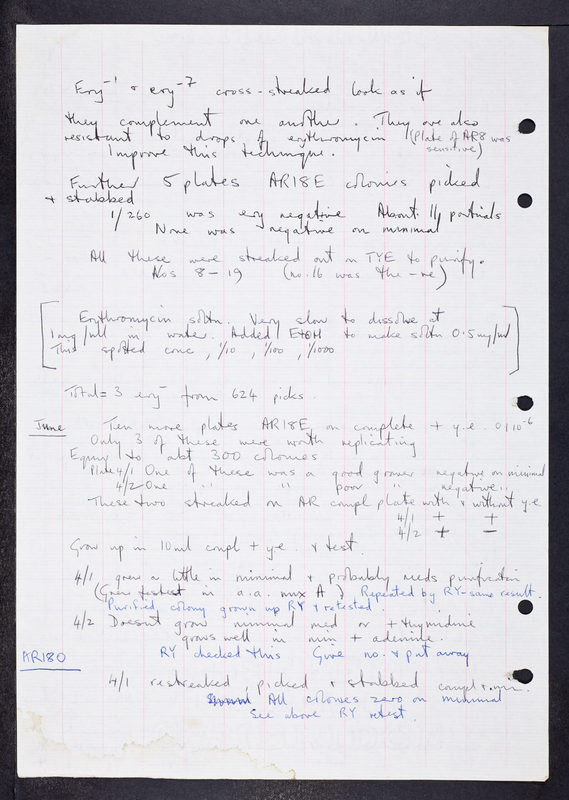 Ery⁻¹ & ery⁻⁷ cross-streaked look as if
they complement one another. They are also
resistant to drops of erythromycin (Plate of AR8 was
sensitive)
Improve this technique.
Further 5 plates AR18E colonies picked
& stabbed
1/260 was ery negative About 11 partials
None was negative on minimal
All these were streaked out on TYE to purify.
Nos 8-19 (no. 16 was the -ve)
[Erythromycin soltn. Very slow to dissolve at
1mg/ml in water. Added EtOH to make soltn 0.5mg/ml
This spotted conc, 1/10, 1/100, 1/1000]
Total = 3 ery⁻ from 624 picks.
June Ten more plates AR18E on complete + y.e. 10⁻⁶
Only 3 of these were worth replicating
Equiv to abt 300 colonies
Plate 4/1 One of these was a good grower negative on minimal
4/2 One " " poor " negative "
These two streaked on AR compl plate with & without y.e
4/1 + +
4/2 + -
Grow up in 10ml compl + y.e. & test
4/1 grew a little in minimal & probably needs purification
(Grew fastest in a.a. mix A) Repeated by RY-same result.
Purified colony grown up RY & retested.
4/2 Doesn't grow minimal med or + thymidine
grows well in min + adenine.
AR180 RY checked this Give no. & put away
4/1 restreaked, picked & stabbed compl & min.
All colonies zero on minimal
See above RY retest.